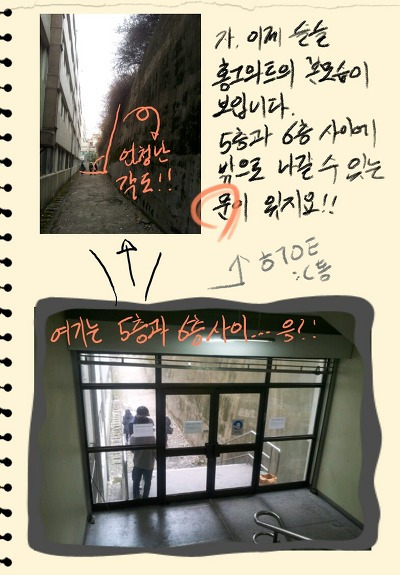 자, 이제 슬슬
홍고의트의 본모습이
보입니다.
5층과 6층 사이에
밖으로 나갈 수 있는
문이 있지요!!
이 엄청난
각도!!
여기는 5층과 6층 사이... 응?!